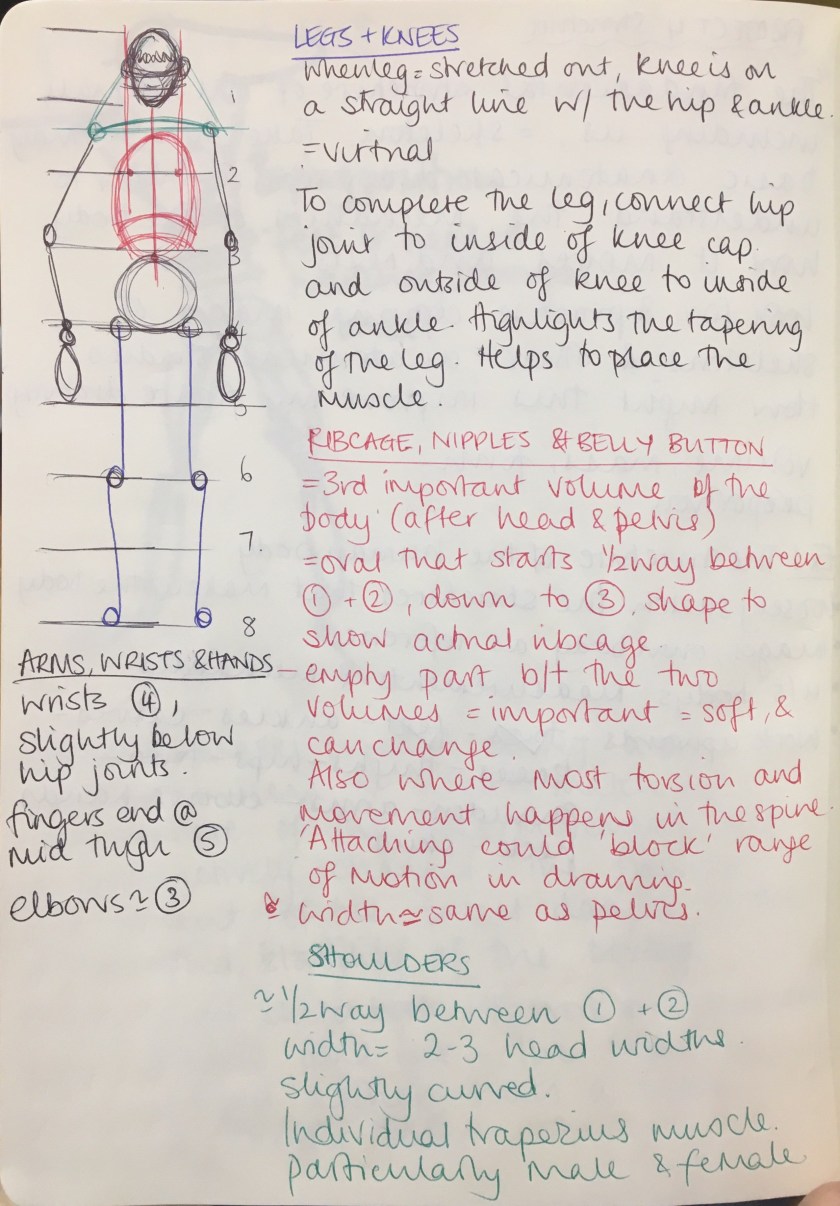 1
2
3
4
5
6
7
8
LEGS + KNEES
When leg = stretched out, knee is on
a straight line w/ the hip & ankle.
= virtual
To complete the leg, connect hip
joint to inside of knee cap
and outside of knee to inside
of ankle. Highlights the tapering
of the leg. Helps to place the
muscle.
RIBCAGE, NIPPLES & BELLY BUTTON
= 3rd important volume of the
body (after head & pelvis)
= oval that starts 1/2 way between
① + ②, down to ③, shape to
show actual ribcage
- empty part b/t the two
volumes = important = soft, &
can change.
Also where most torsion and
movement happens in the spine.
'Attaching could 'block' range
of motion in drawing.
width ≃ same as pelvis.
ARMS, WRISTS & HANDS
wrists ④,
slightly below
hip joints.
fingers end @
mid thigh ⑤
elbows ≃ ③
SHOULDERS
≃ 1/2 way between ① + ②
width = 2-3 head widths.
slightly curved.
Individual trapezius muscle.
particularly male & female